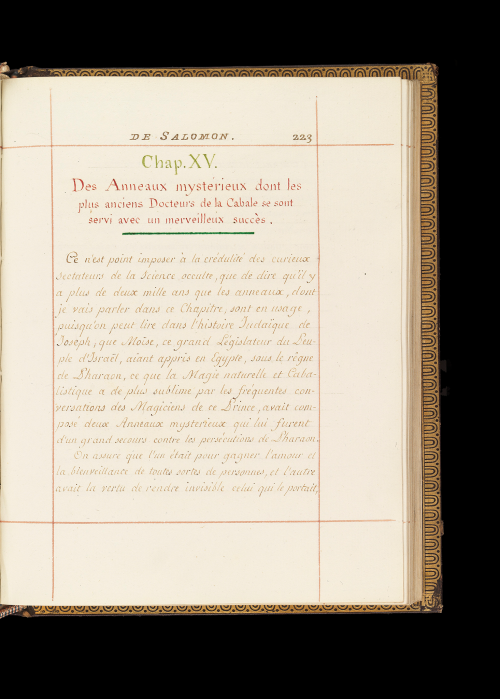 DE SALOMON. 223
Chap. XV.
Des Anneaux mystérieux dont les
plus anciens Docteurs de la Cabale se sont
servi avec un merveilleux succès.
Ce n'est point imposer à la crédulité des curieux
Sectateurs de la Science occulte, que de dire qu'il y
a plus de deux mille ans que les anneaux, dont
je vais parler dans ce Chapitre, sont en usage,
puisqu'on peut lire dans l'histoire Judaïque de
Joseph, que Moïse, ce grand Législateur du Peu-
ple d'Israël, aïant appris en Egypte, sous le règne
de Pharaon, ce que la Magie naturelle et Caba-
listique a de plus sublime par les fréquentes con-
versations des Magiciens de ce Prince, avait com-
posé deux Anneaux mysterieux qui lui furent
d'un grand secours contre les persécutions de Pharaon.
On assure que l'un était pour gagner l'amour et
la bienveillance de toutes sortes de personnes, et l'autre
avait la vertu de rendre invisible celui qui le portait,